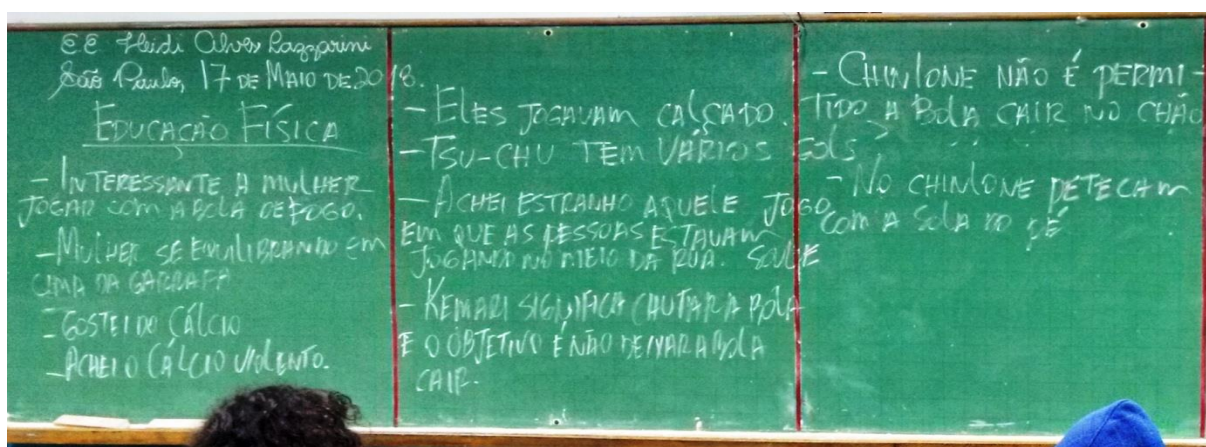 EE Heidi Alves Lazzarini
São Paulo, 17 DE MAIO DE 2018.
EDUCAÇÃO FÍSICA
- INTERESSANTE A MULHER
JOGAR COM A BOLA DE FOGO.
- MULHER SE EQUILIBRANDO EM
CIMA DA GARRAFA
- GOSTEI DO CÁLCIO
- ACHEI O CÁLCIO VIOLENTO.
- ELES JOGAVAM CALÇADO.
- TSU-CHU TEM VÁRIOS GOLS
- ACHEI ESTRANHO AQUELE JOGO
EM QUE AS PESSOAS ESTAVAM
JOGANDO NO MEIO DA RUA. SOULE
- KEMARI SIGNIFICA CHUTAR A BOLA
E O OBJETIVO É NÃO DEIXAR A BOLA
CAIR.
- CHINLONE NÃO É PERMI-
TIDO A BOLA CAIR NO CHÃO
- NO CHINLONE PETECAM
COM A SOLA DO PÉ